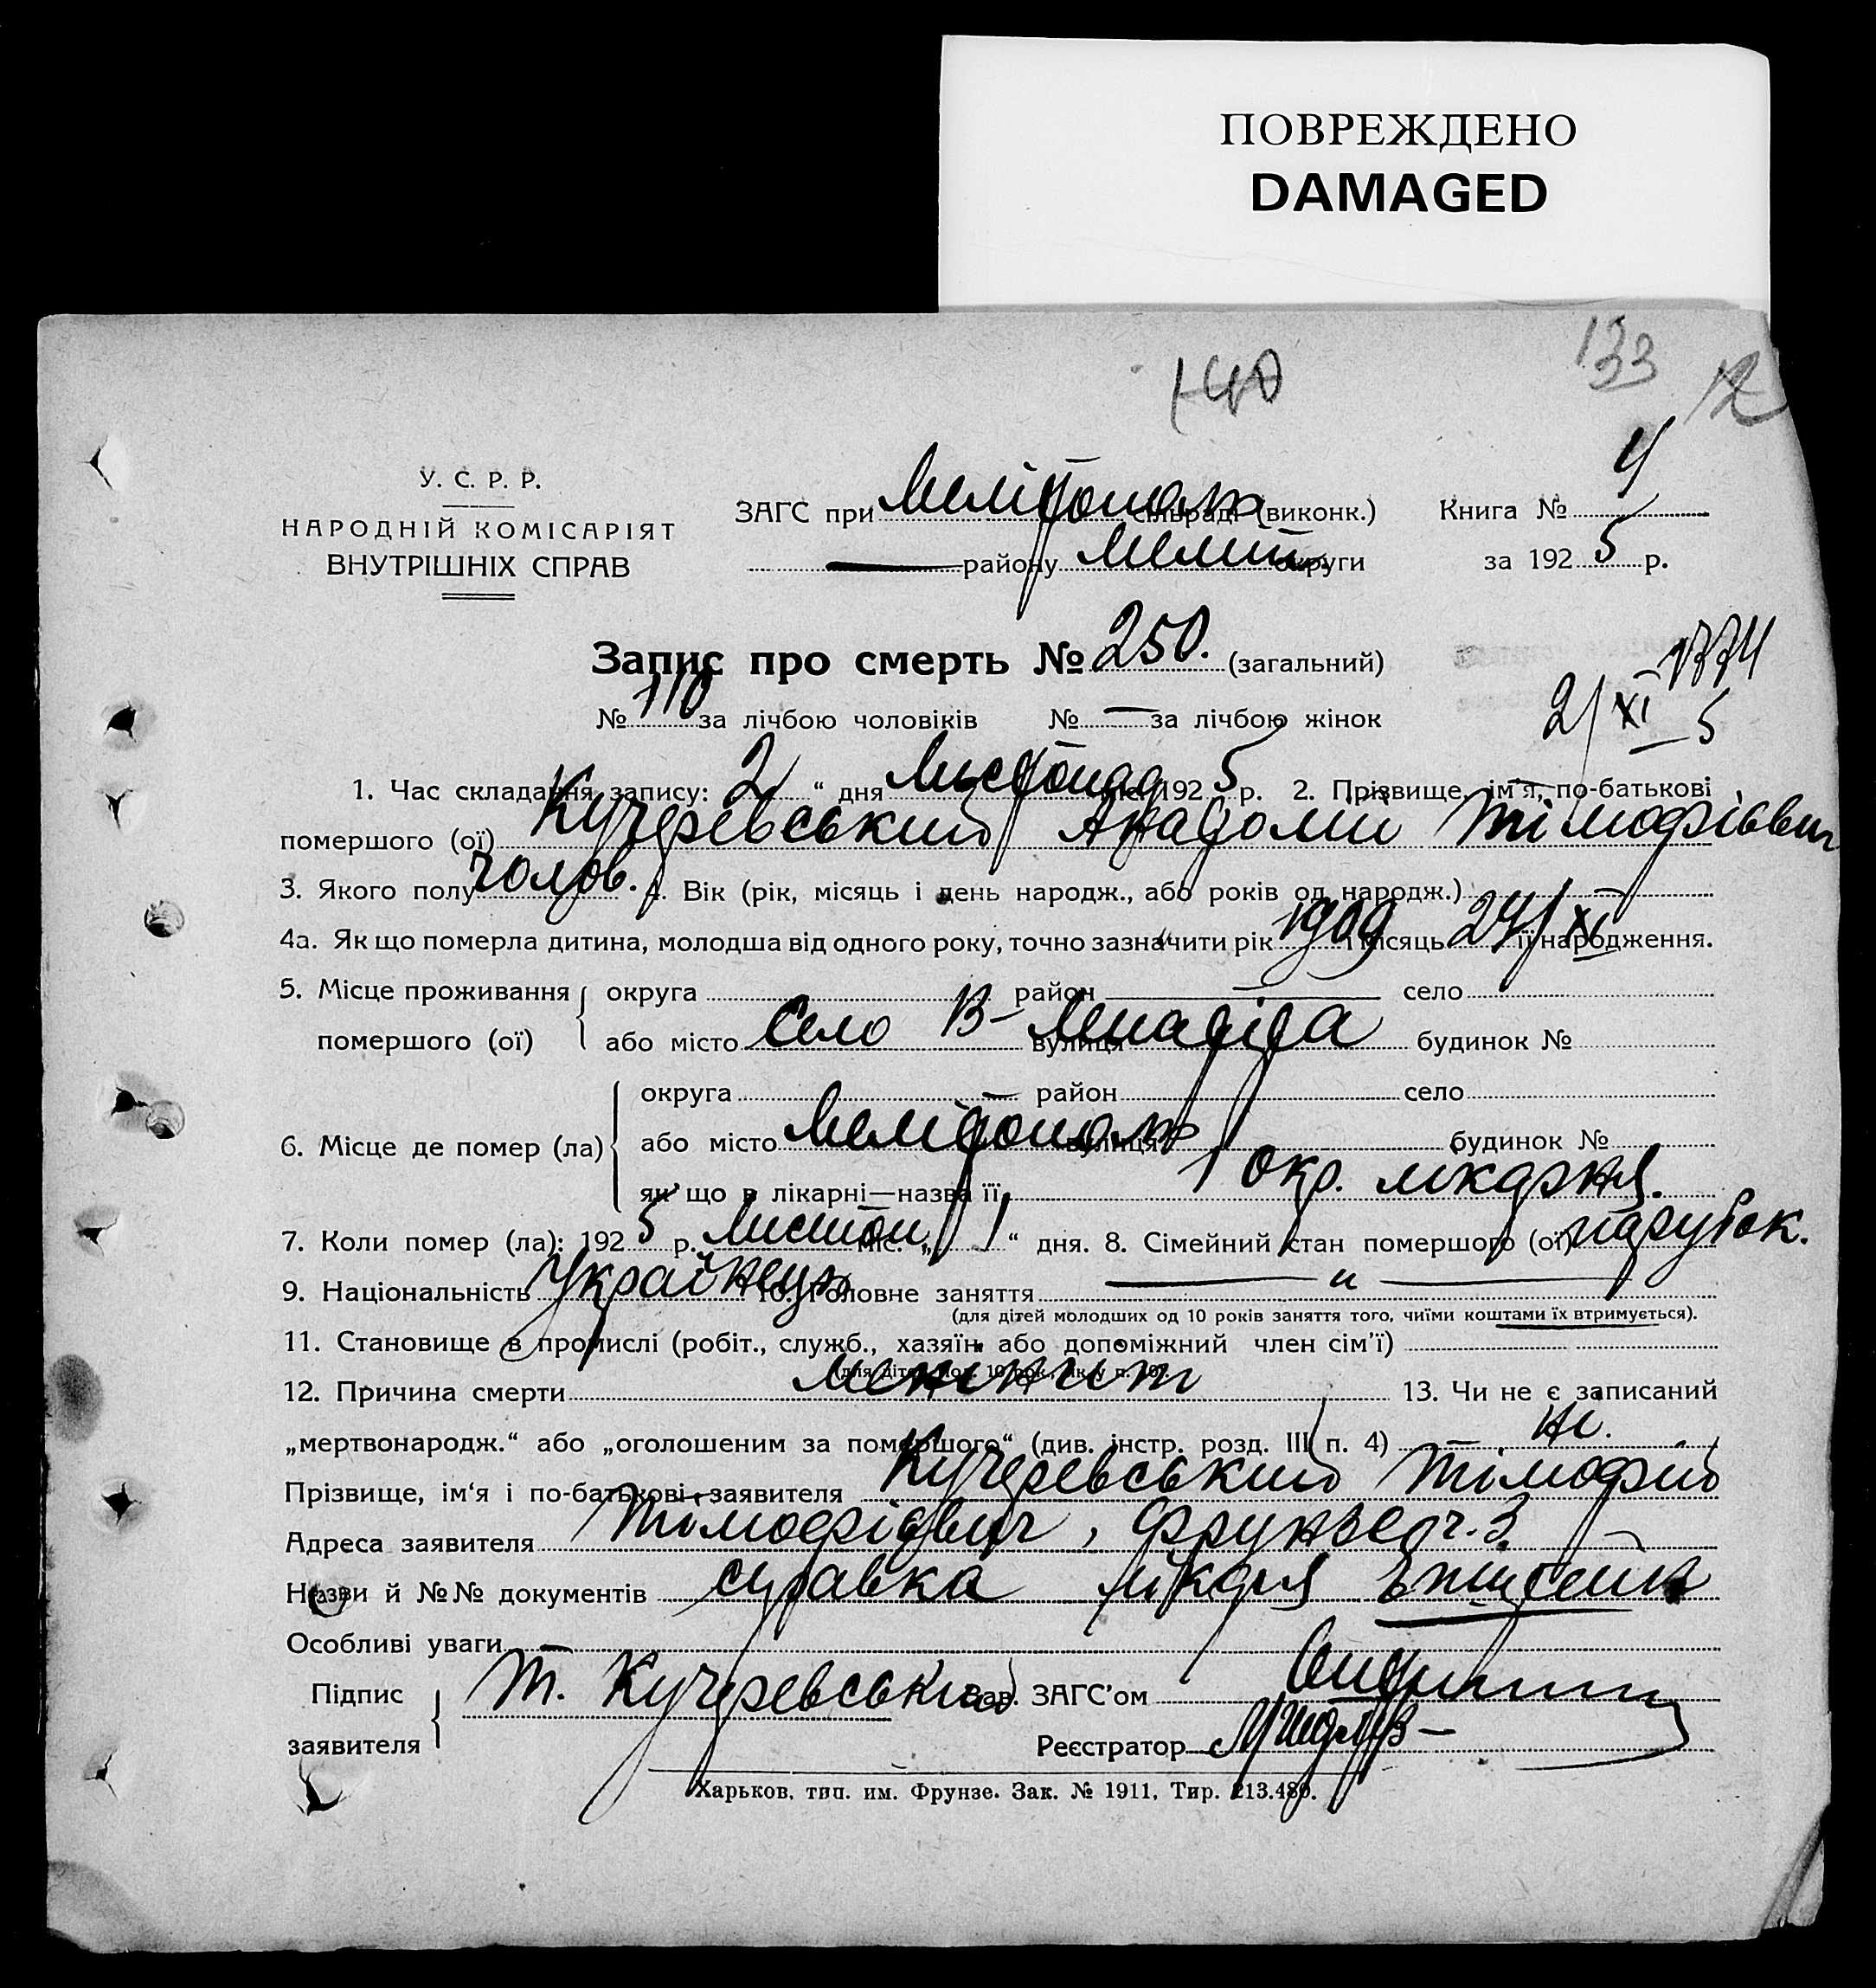 ПОВРЕЖДЕНО
DAMAGED
140
133
12
У. С. Р. Р.
НАРОДНІЙ КОМІСАРІЯТ
ВНУТРІШНІХ СПРАВ
ЗАГС при Мелітополь сільраді (виконк.)
району Меліт. округи
Книга № 4
за 192 5 р.
Запис про смерть № 250. (загальний)
1374
2/XI 5
№ 110 за лічбою чоловіків № — за лічбою жінок
1. Час складання запису: 2 “ дня Листопад міс. 192 5 р. 2. Прізвище, ім'я, по-батькові
помершого (ої) Кучеревський Анатолій Тімофієвич
3. Якого полу чолов. 4. Вік (рік, місяць і день народж., або років од народж.)
4а. Як що померла дитина, молодша від одного року, точно зазначити рік 1909 і місяць 24/XI її народження.
5. Місце проживання помершого (ої) { округа район село
або місто Село В- вулиця будинок №
6. Місце де помер (ла) { округа район село
або місто Мелітополь вулиця будинок №
як що в лікарні—назва її 1 Окр. лікарня.
7. Коли помер (ла): 192 5 р. Листоп. міс. „ 1 “ дня. 8. Сімейний стан помершого (ої) парубок.
9. Національність Українець 10. Головне заняття — " —
(для дітей молодших од 10 років заняття того, чиїми коштами їх втримується).
11. Становище в промислі (робіт., служб., хазяїн або допоміжний член сім'ї)
(для дітей мол. 10 рок. як у п. 10).
12. Причина смерти Менінгіт 13. Чи не є записаний
„мертвонародж.“ або „оголошеним за помершого“ (див. інстр. розд. III п. 4) не.
Прізвище, ім'я і по-батькові заявителя Кучеревський Тімофій
Адреса заявителя Тімофієвич, Фрунзе ч. 3.
Назви й №№ документів справка лікаря
Особливі уваги —
Підпис заявителя } Т. Кучеревський Зав. ЗАГС'ом
Реєстратор
Харьков, тип. им. Фрунзе. Зак. № 1911, Тир. 213.480.